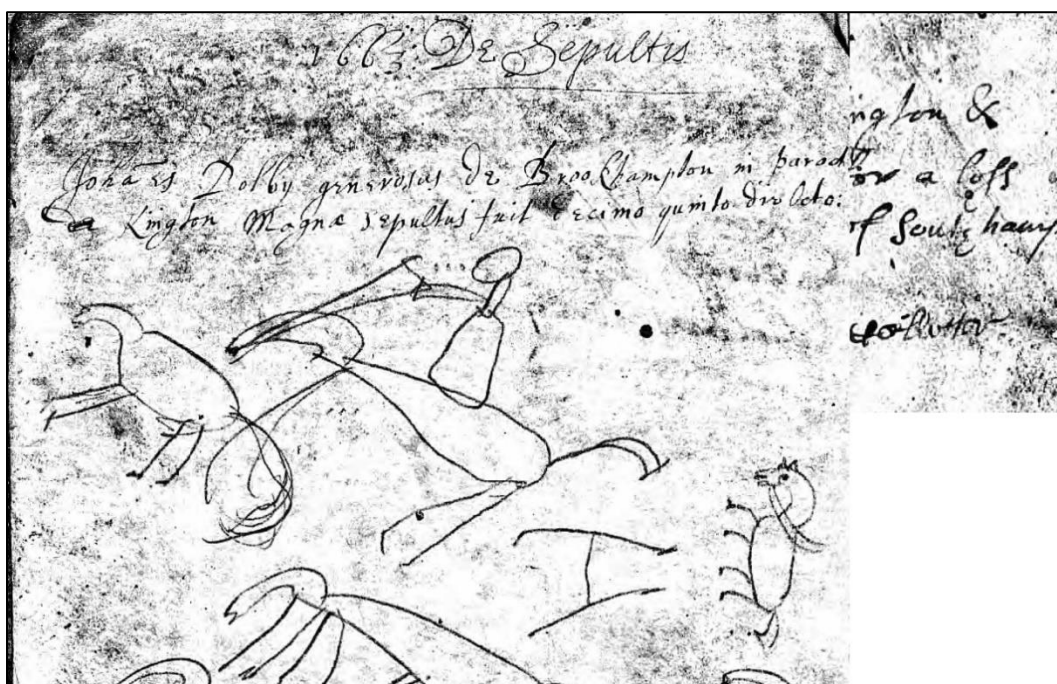 1663 De Sepultis
Johães Dolby generosus de Broockhampton in paroch
de Kington Magnæ sepultus fuit decimo quinto die Octo:
ngton &
or a loss
of Southamp